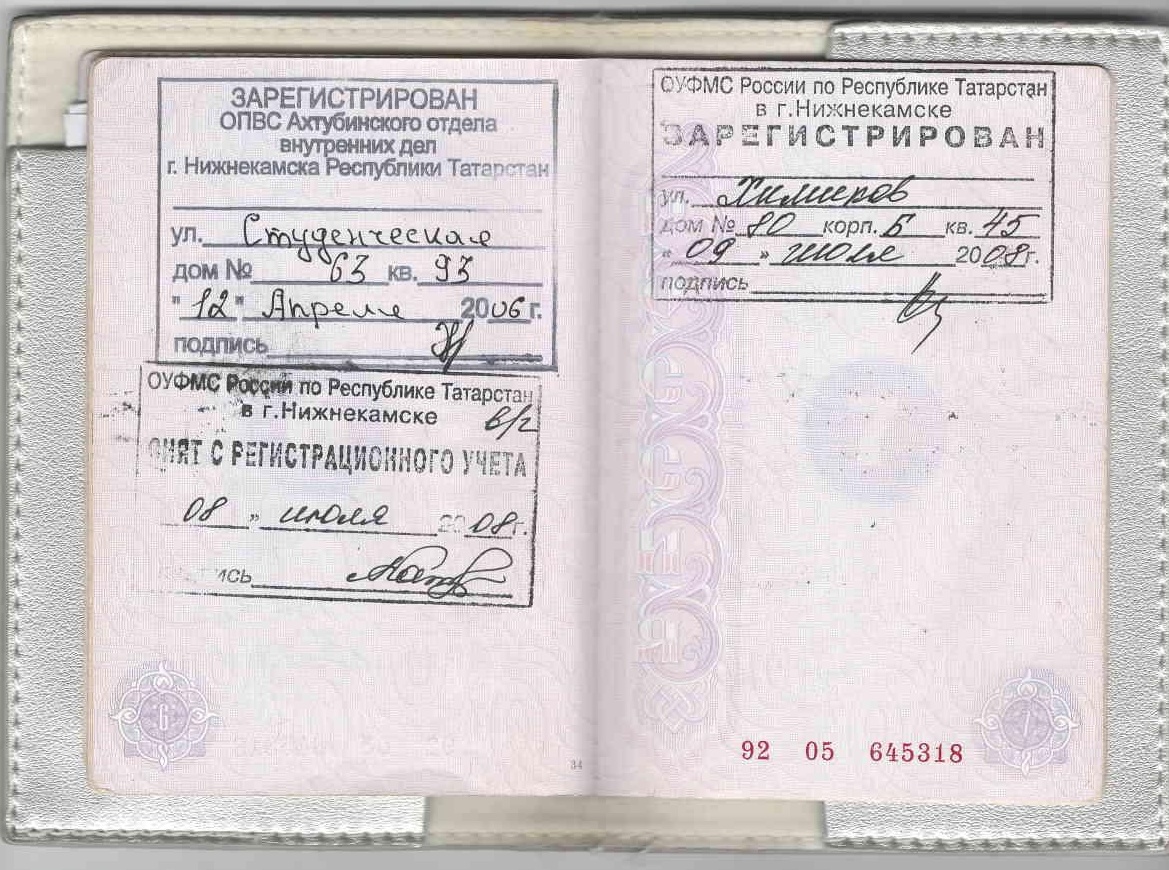 ЗАРЕГИСТРИРОВАН
ОПВС Ахтубинского отдела
внутренних дел
г. Нижнекамска Республики Татарстан
ул. Студенческая
дом № 63 кв. 93
"12" Апреле 2006 г.
подпись
ОУФМС России по Республике Татарстан
в г.Нижнекамске в/г
СНЯТ С РЕГИСТРАЦИОННОГО УЧЕТА
08 " июля 2008г.
подпись
6
34
ОУФМС России по Республике Татарстан
в г.Нижнекамске
ЗАРЕГИСТРИРОВАН
ул. Химиков
дом № 80 корп. Б кв. 45
" 09 " июля 2008г.
подпись
7
92 05 645318